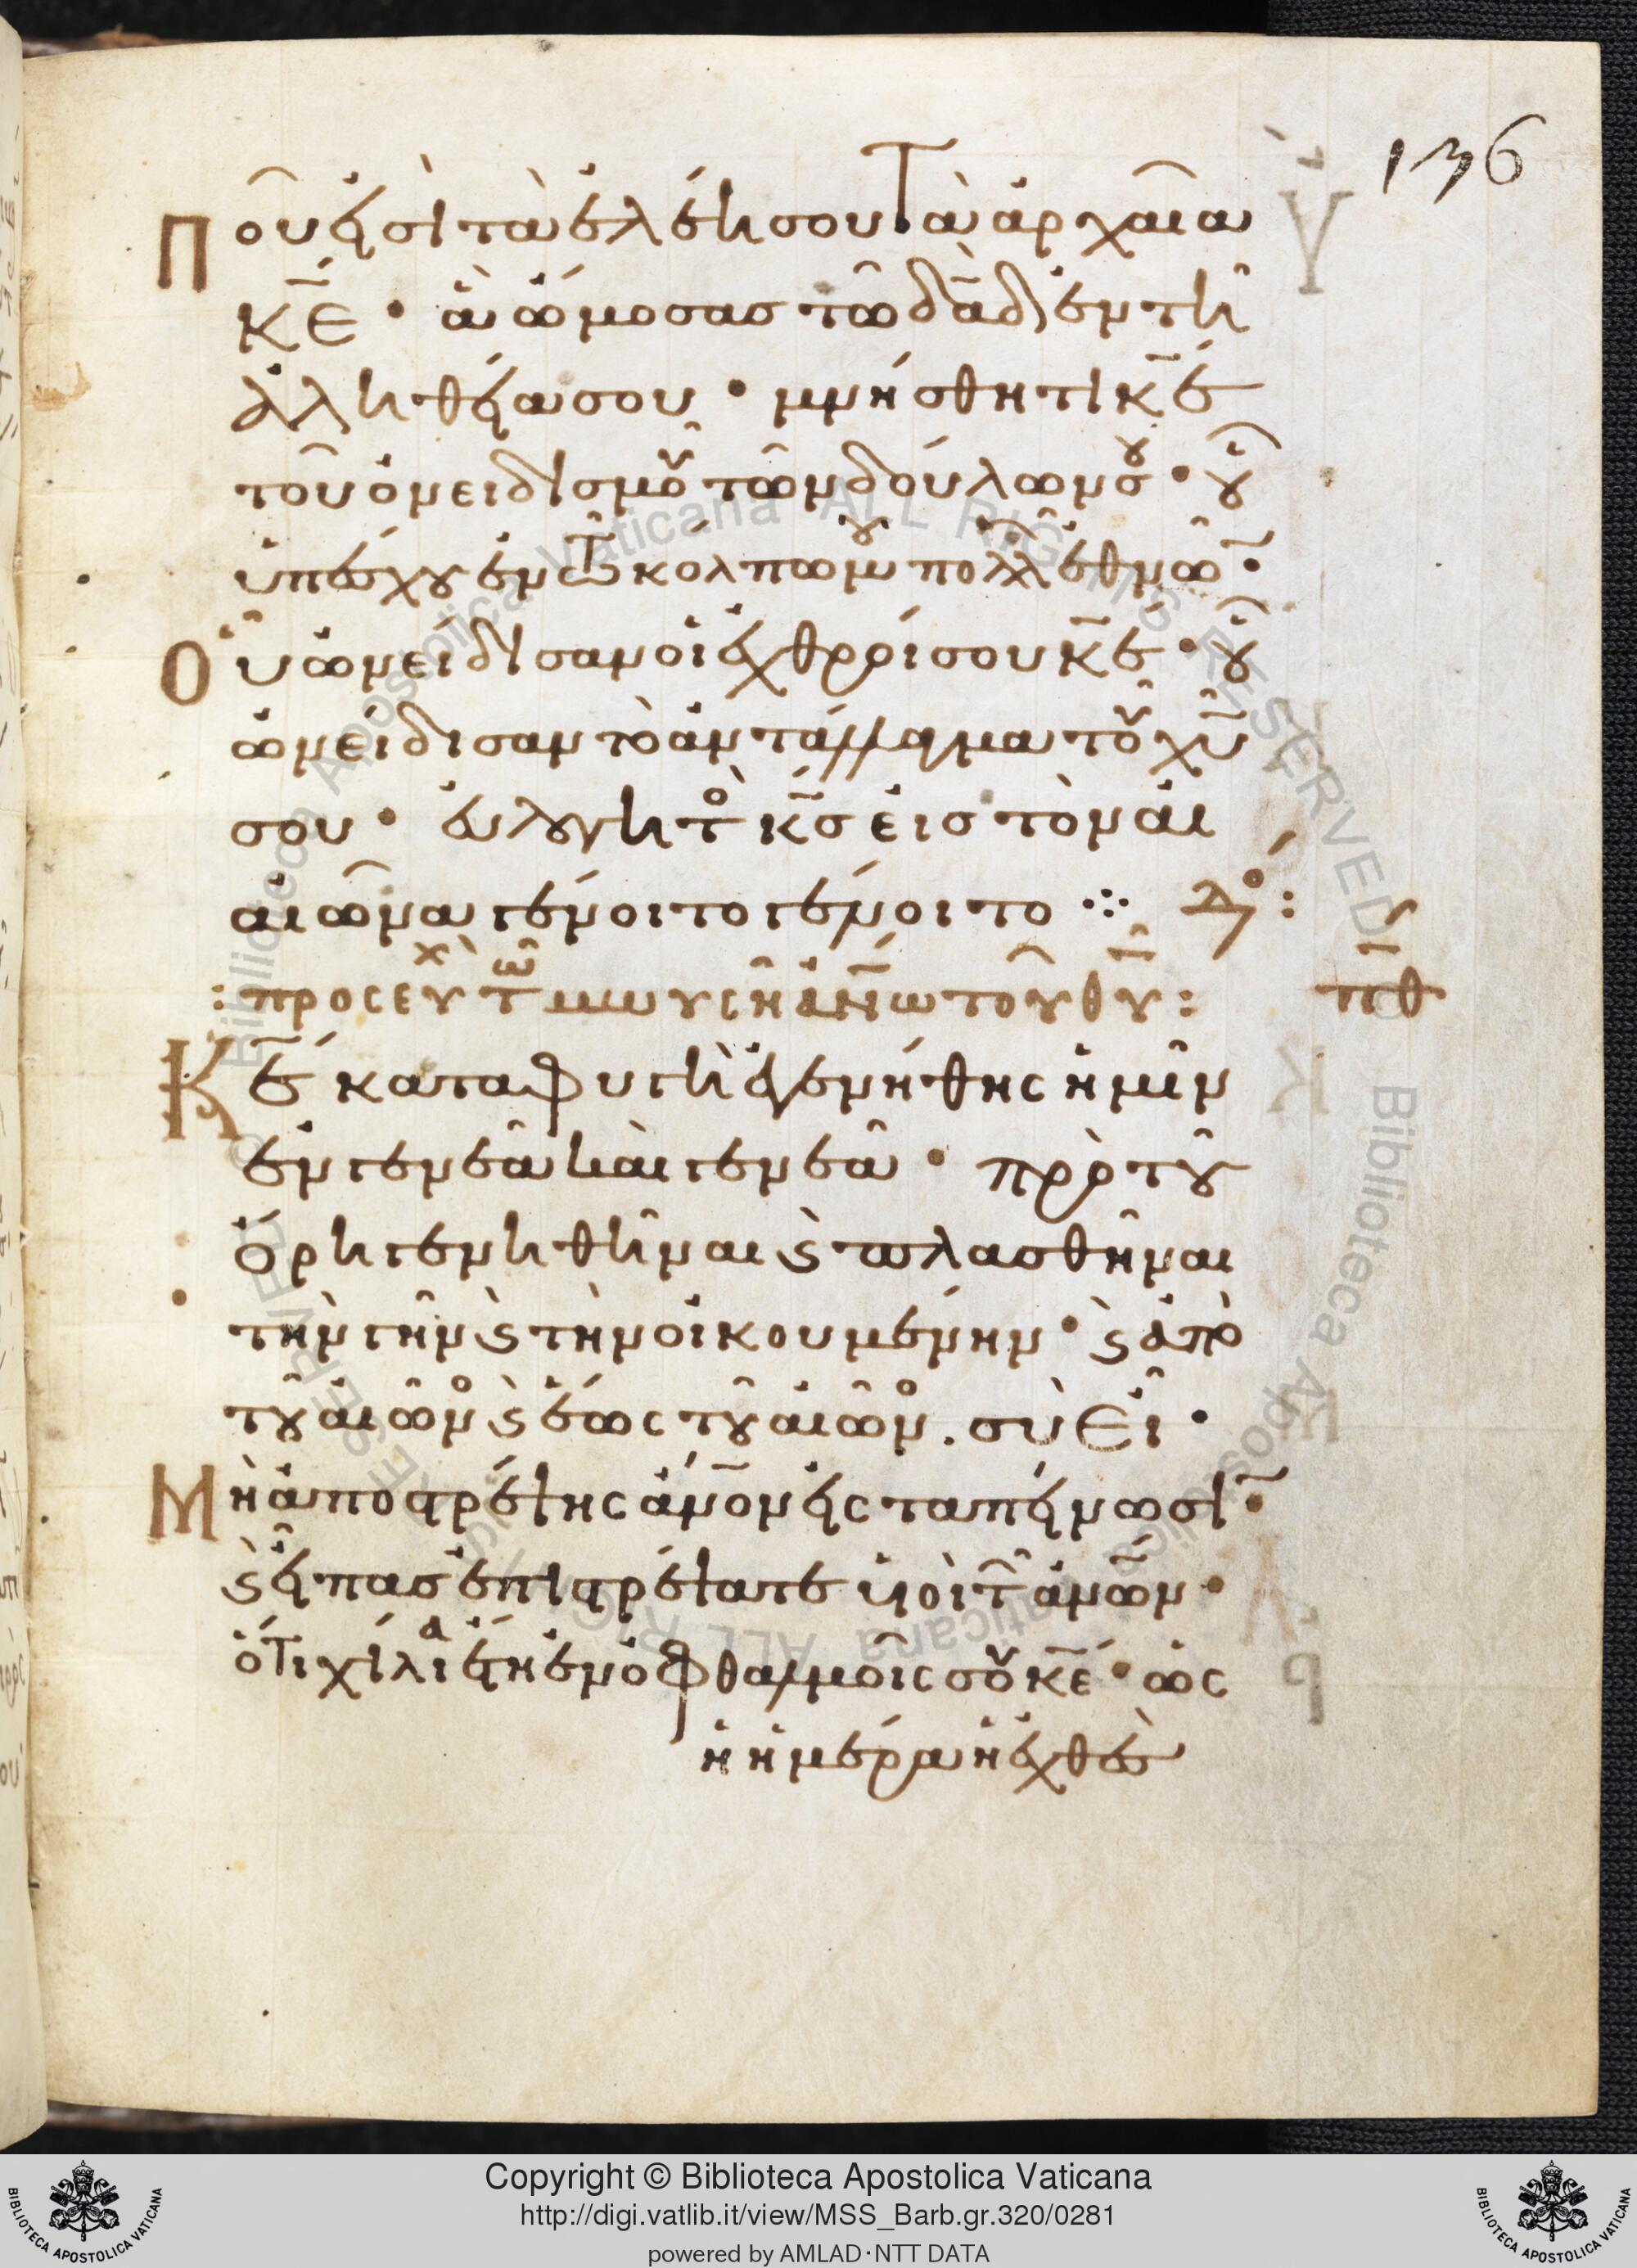 136
Ποῦ εἰσὶ τὰ ἐλέη σου τὰ ἀρχαῖα
κ̅ε̅· ἃ ὤμοσας τῶ δα̅δ̅ ἐν τῆ
ἀληθεία σου· μνήσθητι κ̅ε̅
τοῦ ὀνειδισμοῦ τῶν δούλων σου· οὗ
ὑπέσχον ἐν τῶ κόλπω μου πολλῶν ἐθνῶν·
Οὗ ὠνείδισαν οἱ ἐχθροί σου κ̅ε̅· οὗ
ὠνείδισαν τὸ ἀντάλλαγμα τοῦ χ̅υ̅
σου· εὐλογητὸς κ̅ς̅ εἰς τὸν αἰ
αἰῶνα γένοιτο γένοιτο ⁘ δο:
:προσευχὴ τῶ μωυσῆ ἀν̅ω̅ τοῦ θ̅υ̅: π̅θ̅
Κ̅ε̅ καταφυγὴ ἐγενήθης ἡμῖν
ἐν γενεᾶ καὶ γενεᾶ· πρὸ τοῦ
ὄρη γενηθῆναι ϗ πλασθῆναι
τὴν γῆν ϗ τὴν οἰκουμένην· ϗ ἀπὸ
τοῦ αἰῶνος ϗ ἕως τοῦ αἰῶνος. σὺ εἶ·
Μὴ ἀποστρέψης ἄν̅ο̅ν̅ εἰς ταπείνωσιν·
ϗ εἶπας ἐπιστρέψατε υἱοὶ τῶν ἀν̅ῶ̅ν̅·
ὅτι χίλια ἔτη ἐν ὀφθαλμοῖς σου κ̅ε̅· ὡς
ἡ ἡμέρα ἡ ἐχθὲς
Copyright © Biblioteca Apostolica Vaticana
http://digi.vatlib.it/view/MSS_Barb.gr.320/0281
powered by AMLAD·NTT DATA
BIBLIOTECA APOSTOLICA VATICANA
BIBLIOTECA APOSTOLICA VATICANA